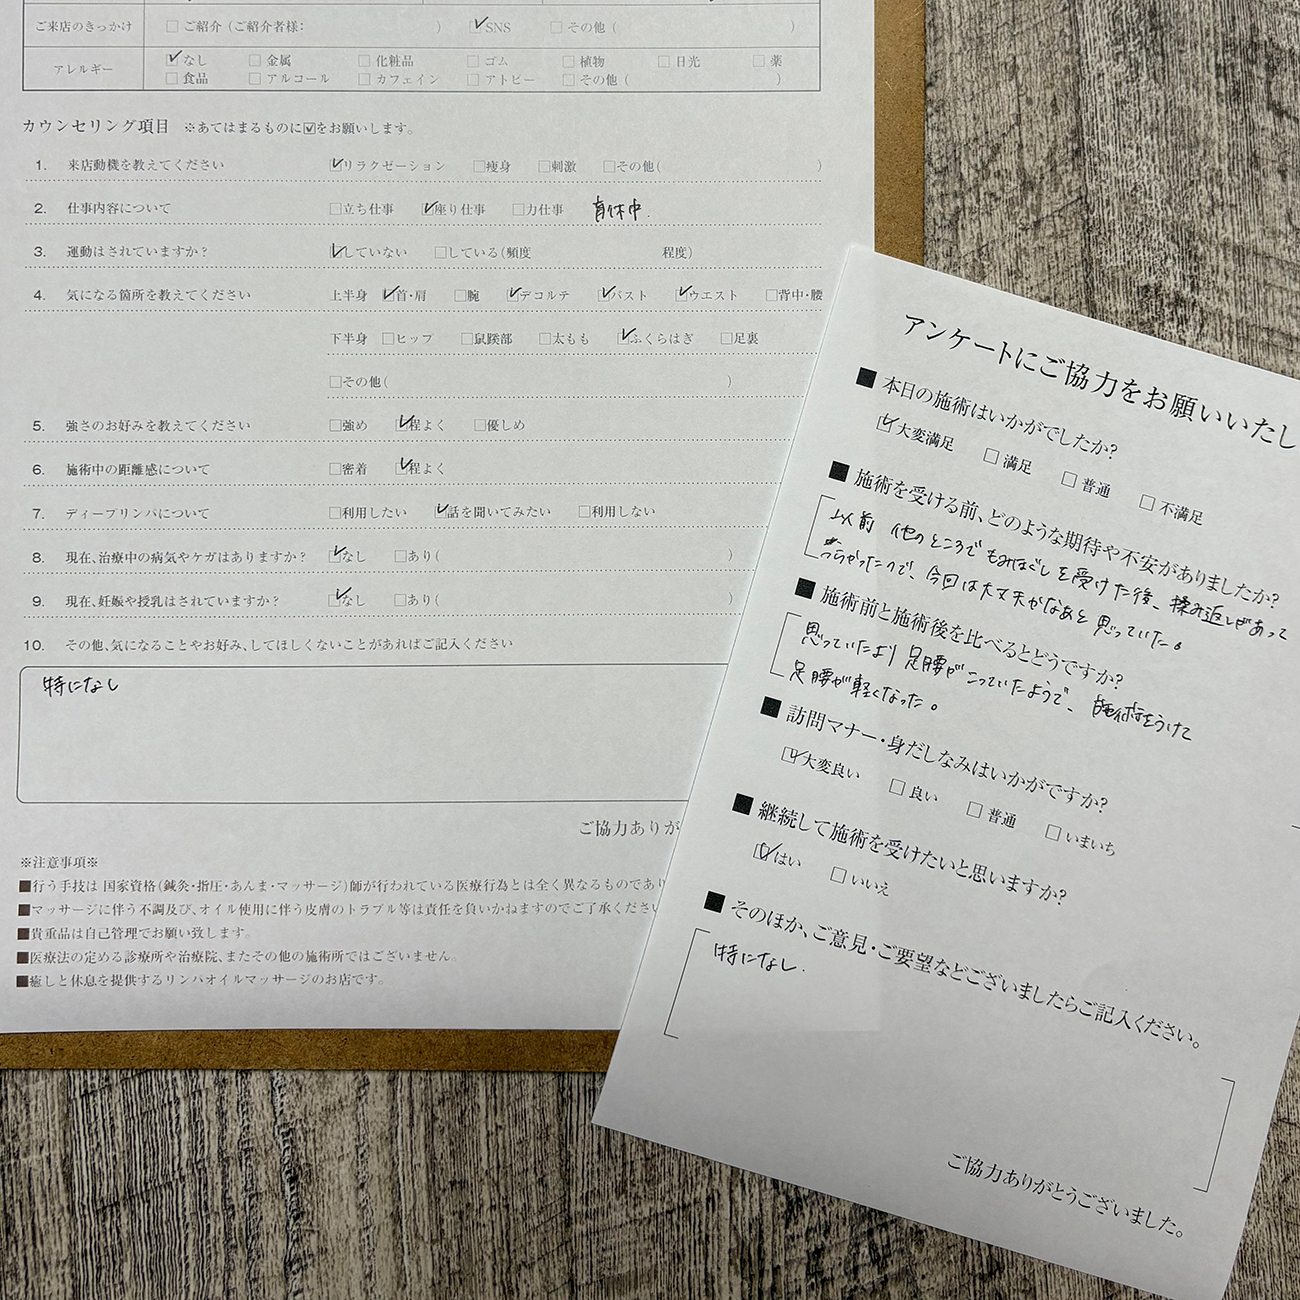 ご来店のきっかけ □ご紹介（ご紹介者様： ） ☑SNS □その他（ ）
アレルギー ☑なし □金属 □化粧品 □ゴム □植物 □日光 □薬
□食品 □アルコール □カフェイン □アトピー □その他（ ）
カウンセリング項目 ※あてはまるものに☑をお願いします。
1. 来店動機を教えてください ☑リラクゼーション □痩身 □刺激 □その他( )
2. 仕事内容について □立ち仕事 ☑座り仕事 □力仕事 育休中.
3. 運動はされていますか？ ☑していない □している(頻度 程度)
4. 気になる箇所を教えてください 上半身 ☑首・肩 □腕 ☑デコルテ ☑バスト ☑ウエスト □背中・腰
下半身 □ヒップ □鼠蹊部 □太もも ☑ふくらはぎ □足裏
□その他( )
5. 強さのお好みを教えてください □強め ☑程よく □優しめ
6. 施術中の距離感について □密着 ☑程よく
7. ディープリンパについて □利用したい ☑話を聞いてみたい □利用しない
8. 現在、治療中の病気やケガはありますか？ ☑なし □あり( )
9. 現在、妊娠や授乳はされていますか？ ☑なし □あり( )
10. その他、気になることやお好み、してほしくないことがあればご記入ください
特になし
ご協力ありが
※注意事項※
■行う手技は 国家資格(鍼灸・指圧・あんま・マッサージ)師が行われている医療行為とは全く異なるものであり
■マッサージに伴う不調及び、オイル使用に伴う皮膚のトラブル等は責任を負いかねますのでご了承ください
■貴重品は自己管理でお願い致します。
■医療法の定める診療所や治療院、またその他の施術所ではございません。
■癒しと休息を提供するリンパオイルマッサージのお店です。
アンケートにご協力をお願いいたし
■ 本日の施術はいかがでしたか？
☑大変満足 □満足 □普通 □不満足
■ 施術を受ける前、どのような期待や不安がありましたか？
以前 他のところでもみほぐしを受けた後、揉み返しがあって
つらかったので、今回は大丈夫かなあと思っていた。
■ 施術前と施術後を比べるとどうですか？
思っていたより足腰がこっていたようで、施術をうけて
足腰が軽くなった。
■ 訪問マナー・身だしなみはいかがですか？
☑大変良い □良い □普通 □いまいち
■ 継続して施術を受けたいと思いますか？
☑はい □いいえ
■ そのほか、ご意見・ご要望などございましたらご記入ください。
特になし.
ご協力ありがとうございました。